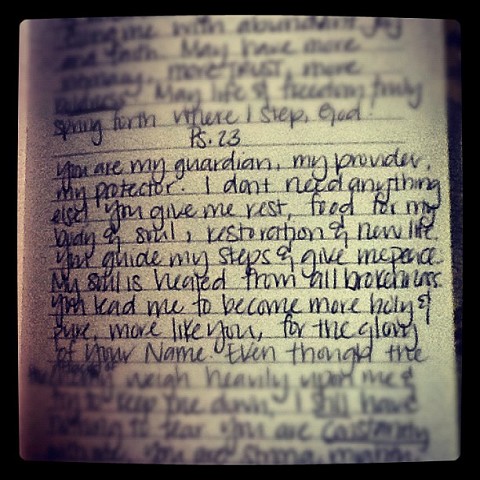 me with abundant joy
and faith. May have more
intimacy, more TRUST, more
May life & freedom truly
spring forth where I step, God.
Ps. 23
You are my guardian, my provider,
my protector. I dont need anything
else! You give me rest, food for my
body & soul, restoration & new life.
You guide my steps & give me peace.
My soul is healed from all brokenness.
You lead me to become more holy &
pure, more like You, for the glory
of Your Name. Even though the
weigh heavily upon me &
try to keep me down, I still have
nothing to fear. You are
You are strong, mighty